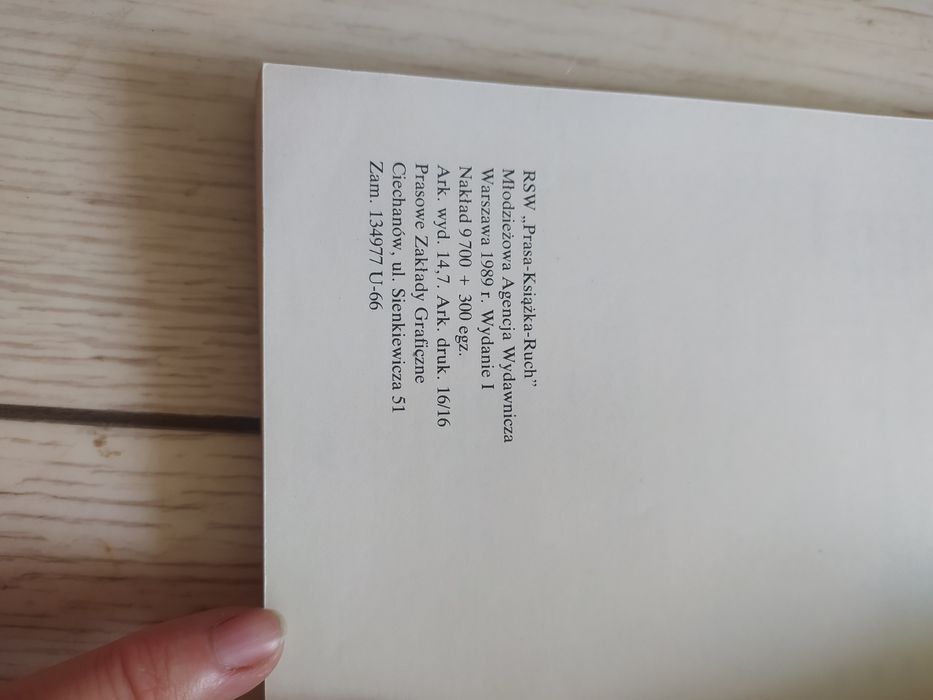 RSW „Prasa-Książka-Ruch”
Młodzieżowa Agencja Wydawnicza
Warszawa 1989 r. Wydanie I
Nakład 9 700 + 300 egz.
Ark. wyd. 14,7. Ark. druk. 16/16
Prasowe Zakłady Graficzne
Ciechanów, ul. Sienkiewicza 51
Zam. 134977 U-66